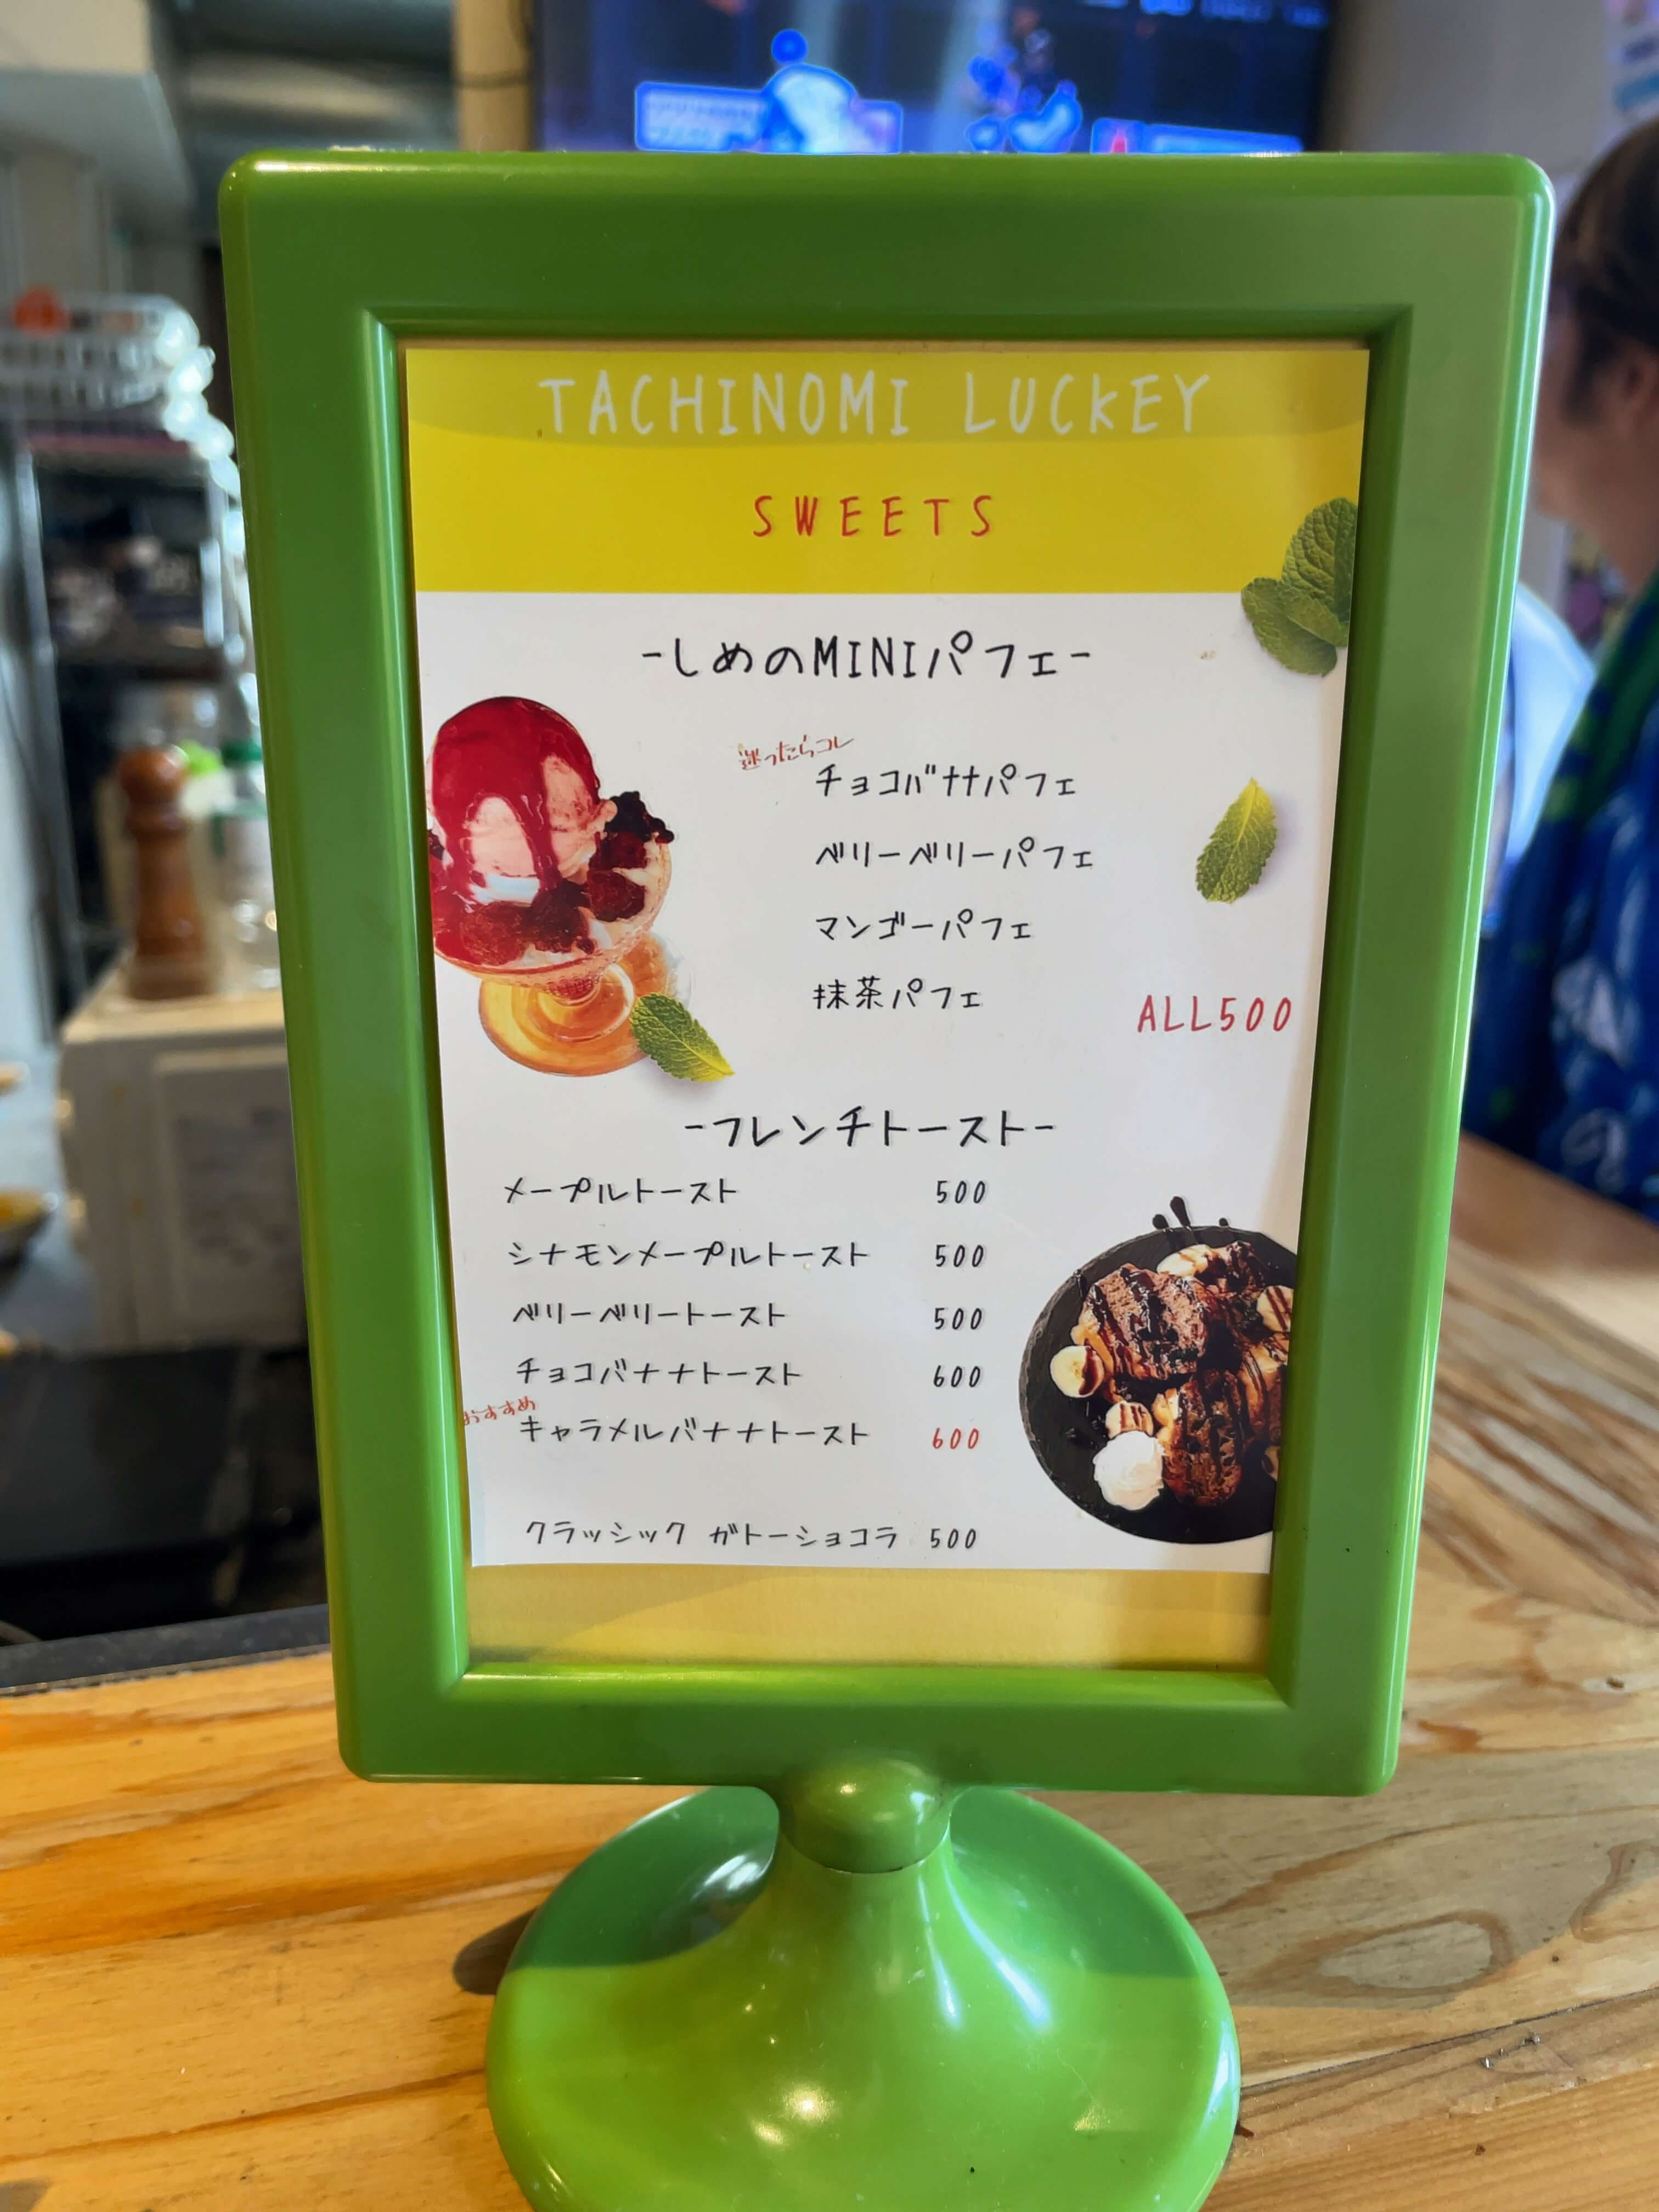 TACHINOMI LUCKEY
SWEETS
-しめのMINIパフェ-
迷ったらコレ
チョコバナナパフェ
ベリーベリーパフェ
マンゴーパフェ
抹茶パフェ
ALL500
-フレンチトースト-
メープルトースト 500
シナモンメープルトースト 500
ベリーベリートースト 500
チョコバナナトースト 600
おすすめ
キャラメルバナナトースト 600
クラッシック ガトーショコラ 500